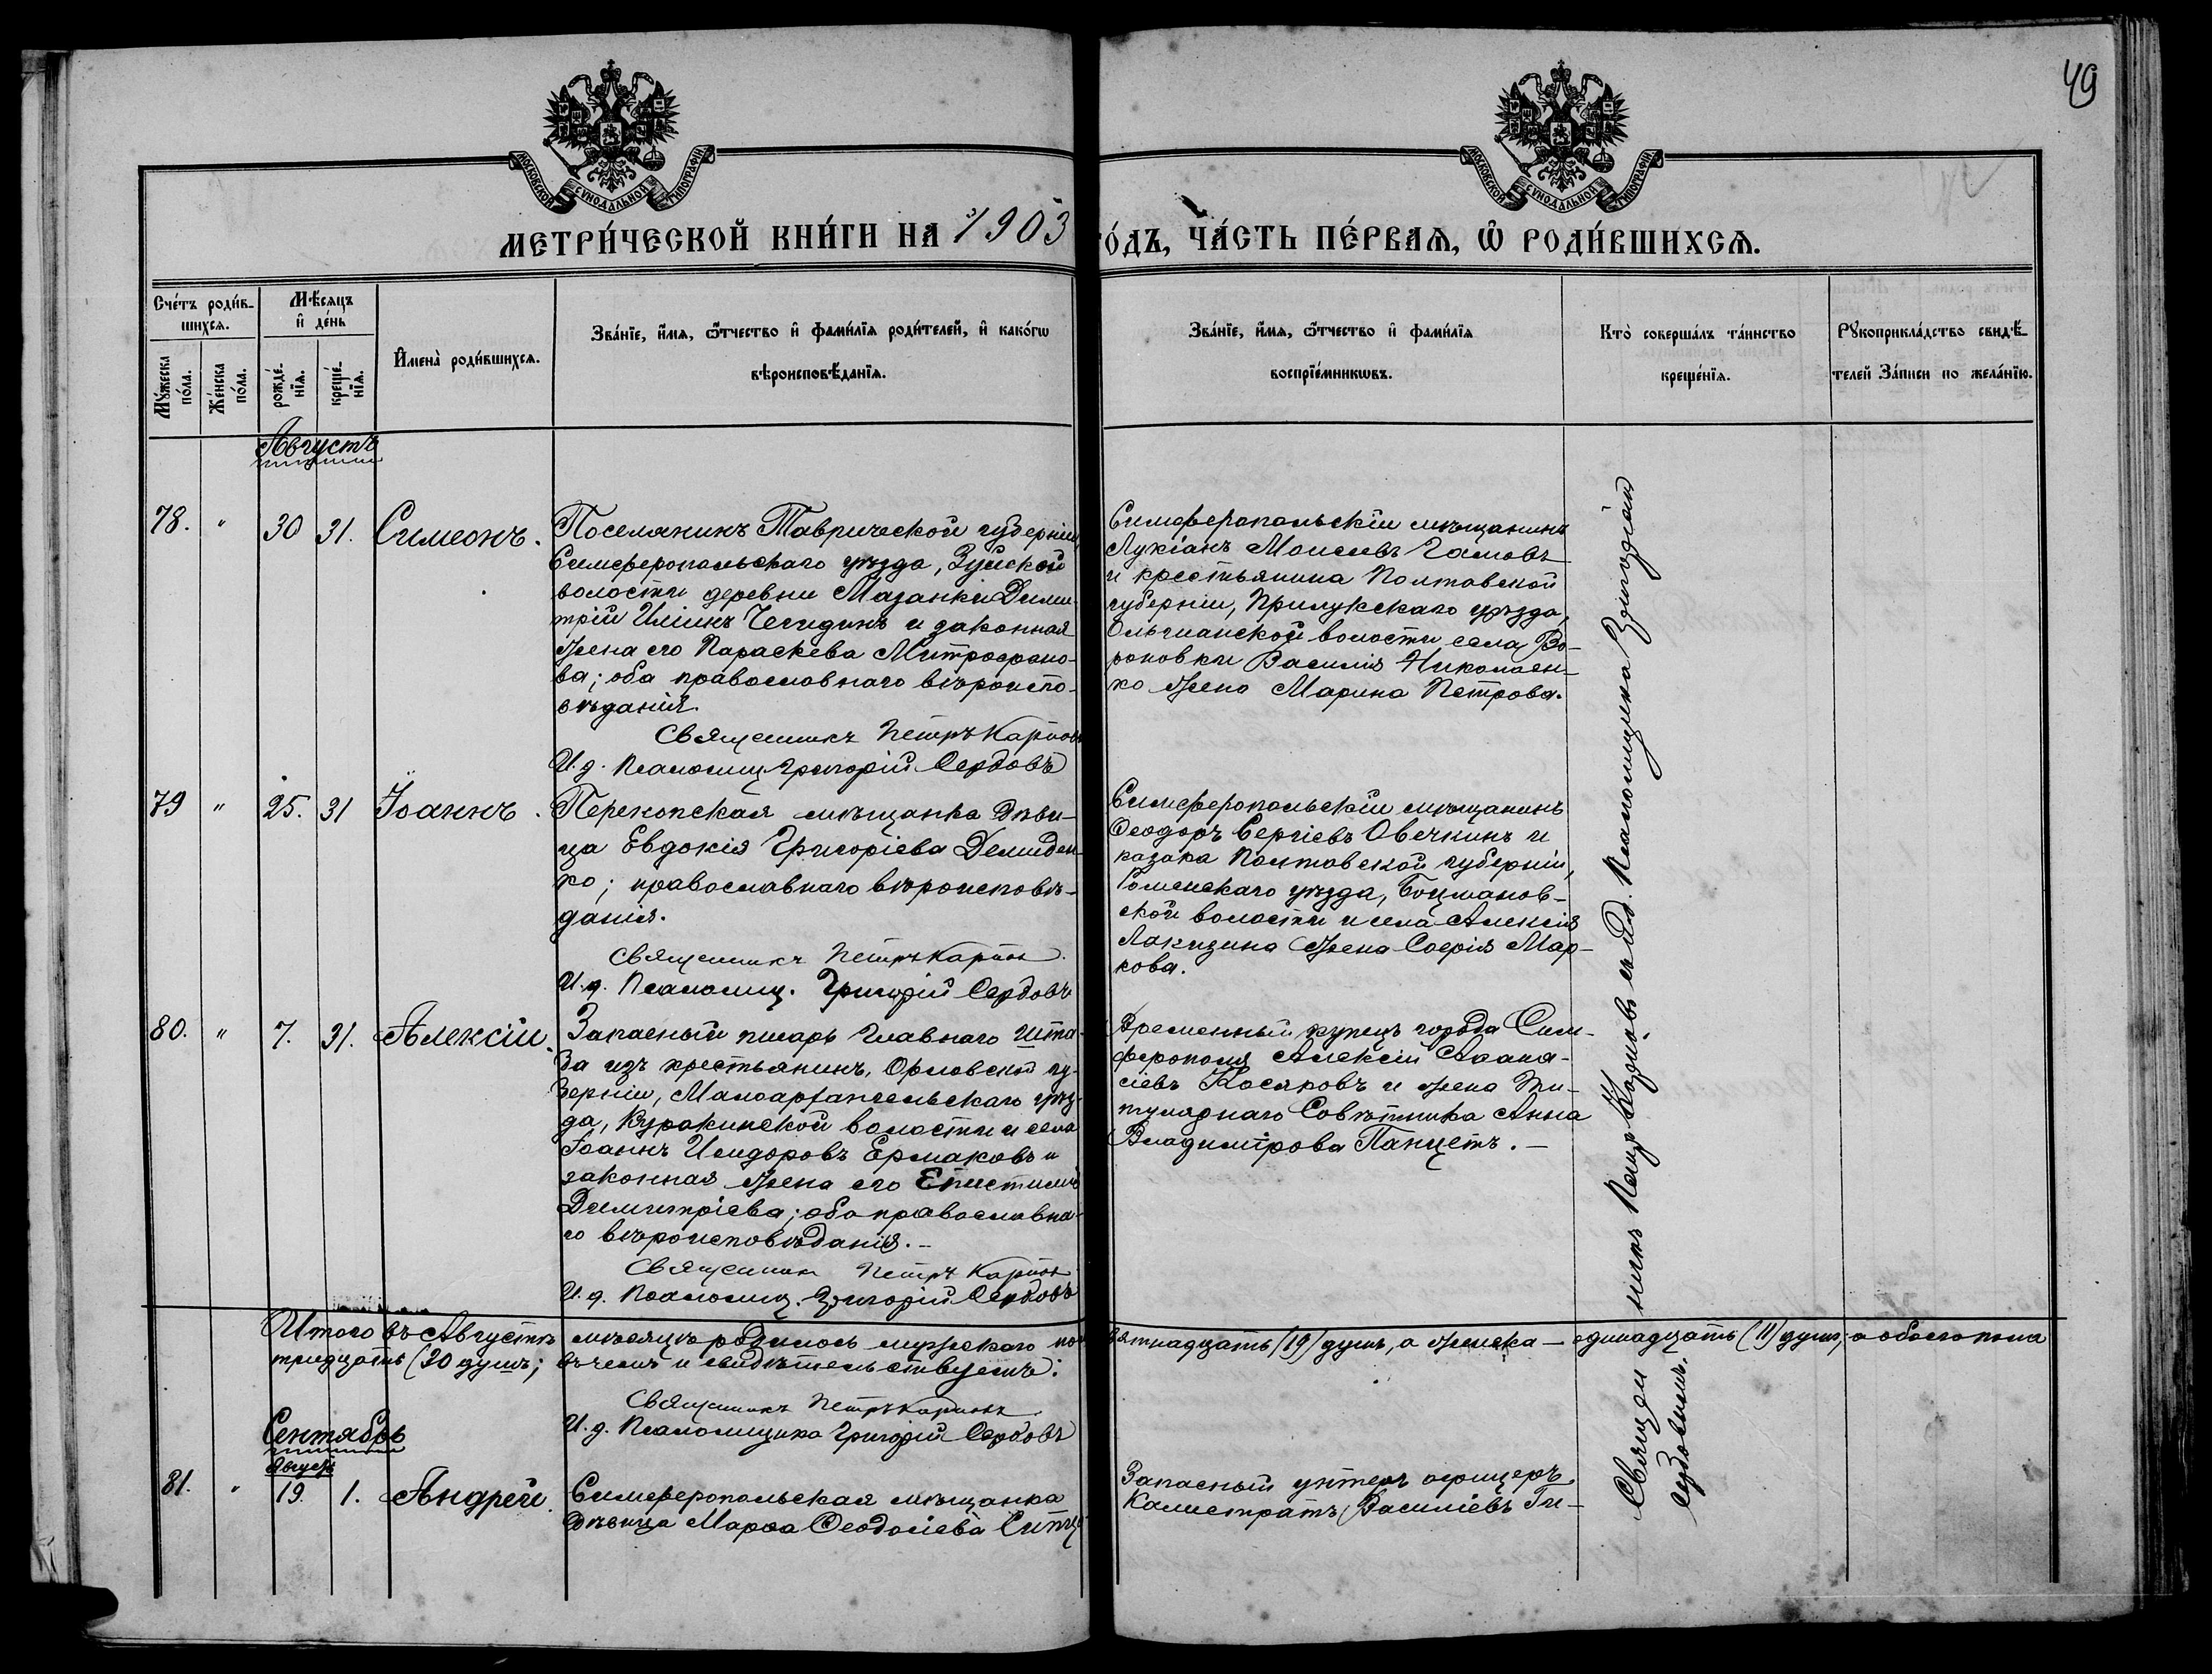 49
МОСКОВСКОЙ СѴНОДАЛЬНОЙ ТИПОГРАФІИ
МОСКОВСКОЙ СѴНОДАЛЬНОЙ ТИПОГРАФІИ
МЕТРИ́ЧЕСКОЙ КНИ́ГИ НА 1903
ГО́ДЪ, ЧА́СТЬ ПЕ́РВАѦ, Ѡ҆ РОДИ́ВШИХСѦ.
Сче́тъ роди́в-
шихсѧ.
Мꙋ́жеска по́ла.
Же́нска по́ла.
Мѣ́сѧцъ и҆ де́нь
рожде́нїѧ.
креще́нїѧ.
И҆мена̀ роди́вшихсѧ.
Зва́нїе, и҆́мѧ, ѻ҆́тчество и҆ фами́лїѧ роди́телей, и҆ како́гѡ
вѣроисповѣ́данїѧ.
Зва́нїе, и҆́мѧ, ѻ҆́тчество и҆ фами́лїѧ
воспрїе́мникѡвъ.
Кто̀ соверша́лъ та́инство
креще́нїѧ.
Рꙋкоприкла́дство свидѣ́-
телей за́писи по жела́нїю.
Августъ
78. " 30 31. Симеонъ.
Поселянинъ Таврической губерніи
Симферопольскаго уѣзда, Зуйской
волости деревни Мазанки Дими-
трій Иліинъ Чегидинъ и законная
жена его Параскева Митрофано-
ва; оба православнаго вѣроиспо-
вѣданія.
Священникъ Петръ Карповъ
И.д. Псаломщ. Григорій Сердовъ
Симферопольскій мѣщанинъ
Лукіанъ Моисеевъ Гамовъ
и крестьянина Полтавской
губерніи, Прилукскаго уѣзда,
Ольшанской волости села Во-
роновки Василія Николаен-
ко жена Марина Петрова.
79 " 25. 31 Іоаннъ.
Перекопская мѣщанка дѣви-
ца Евдокія Григоріева Демиден-
ко; православнаго вѣроисповѣ-
данія.
Священникъ Петръ Карповъ
И.д. Псаломщ. Григорій Сердовъ
Симферопольскій мѣщанинъ
Ѳеодоръ Сергіевъ Овечкинъ и
казака Полтавской губерніи,
Роменскаго уѣзда, Боцманов-
ской волости и села Алексія
Лакизина жена Софія Мар-
кова.
80. " 7. 31. Алексій.
Запасный писарь Главнаго Шта-
ба изъ крестьянинъ, Орловской гу-
берніи, Малоархангельскаго уѣз-
да, Куракинской волости и села
Іоаннъ Исидоровъ Ермаковъ и
законная жена его Епистимія
Димитріева; оба православна-
го вѣроисповѣданія.-
Священникъ Петръ Карповъ
И.д. Псаломщ. Григорій Сердовъ
Временный купецъ города Сим-
ферополя Алексій Аѳана-
сіевъ Косяковъ и жена Ти-
тулярнаго Совѣтника Анна
Владимірова Панцетъ.-
Священникъ Петръ Карповъ съ и.д. Псаломщика Григоріемъ
Сердовымъ.
Итого въ Августѣ мѣсяцѣ родилось мужскаго по девятнадцать (19) душъ, а женска - одинадцать (11) душъ, а обоего пола
тридцать (30 душъ; въ чемъ и свидѣтельствуемъ:
Священникъ Петръ Карповъ
И.д. Псаломщика Григорій Сердовъ
Сентябрь
Августъ
81. " 19. 1. Андрей.
Симферопольская мѣщанка
дѣвица Марѳа Ѳеодосіева
Запасный унтеръ офицеръ
Калистратъ Василіевъ Ги-